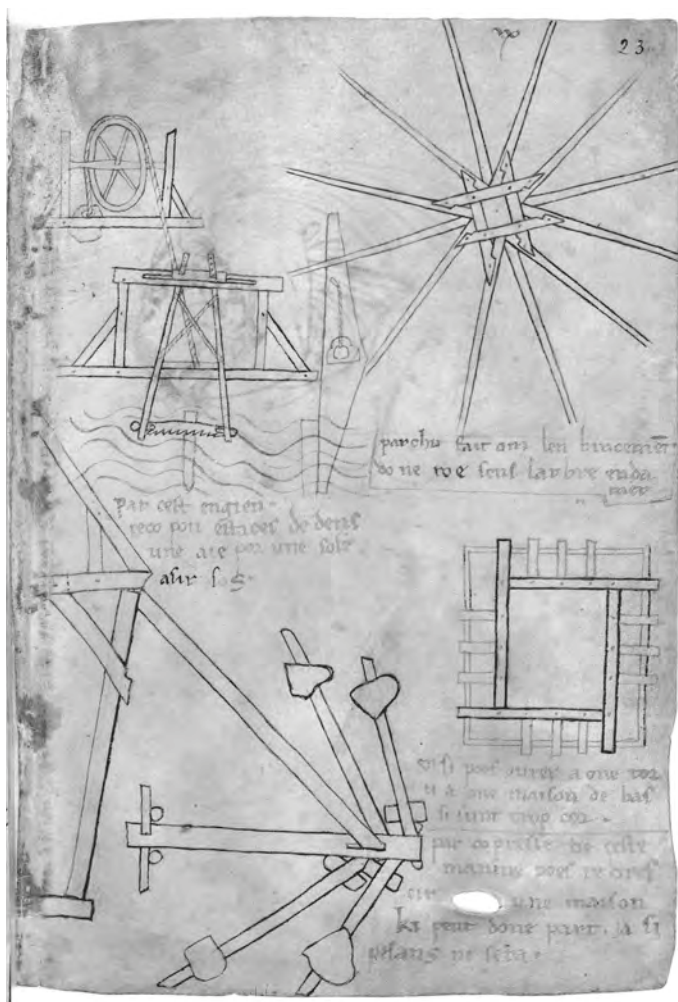 23
par chu fait om
do ne roe sens larbre enda
mer
par cest engien
reco pon estaces de dens
une aie por une sole
asir sus.
si poes ovrer a one tor
u a one maison de bas
si sunt trop cor.
par copresse de ceste
maniere poes redres
cir une maison
ki pent done part. ja si
pesans ne sera.